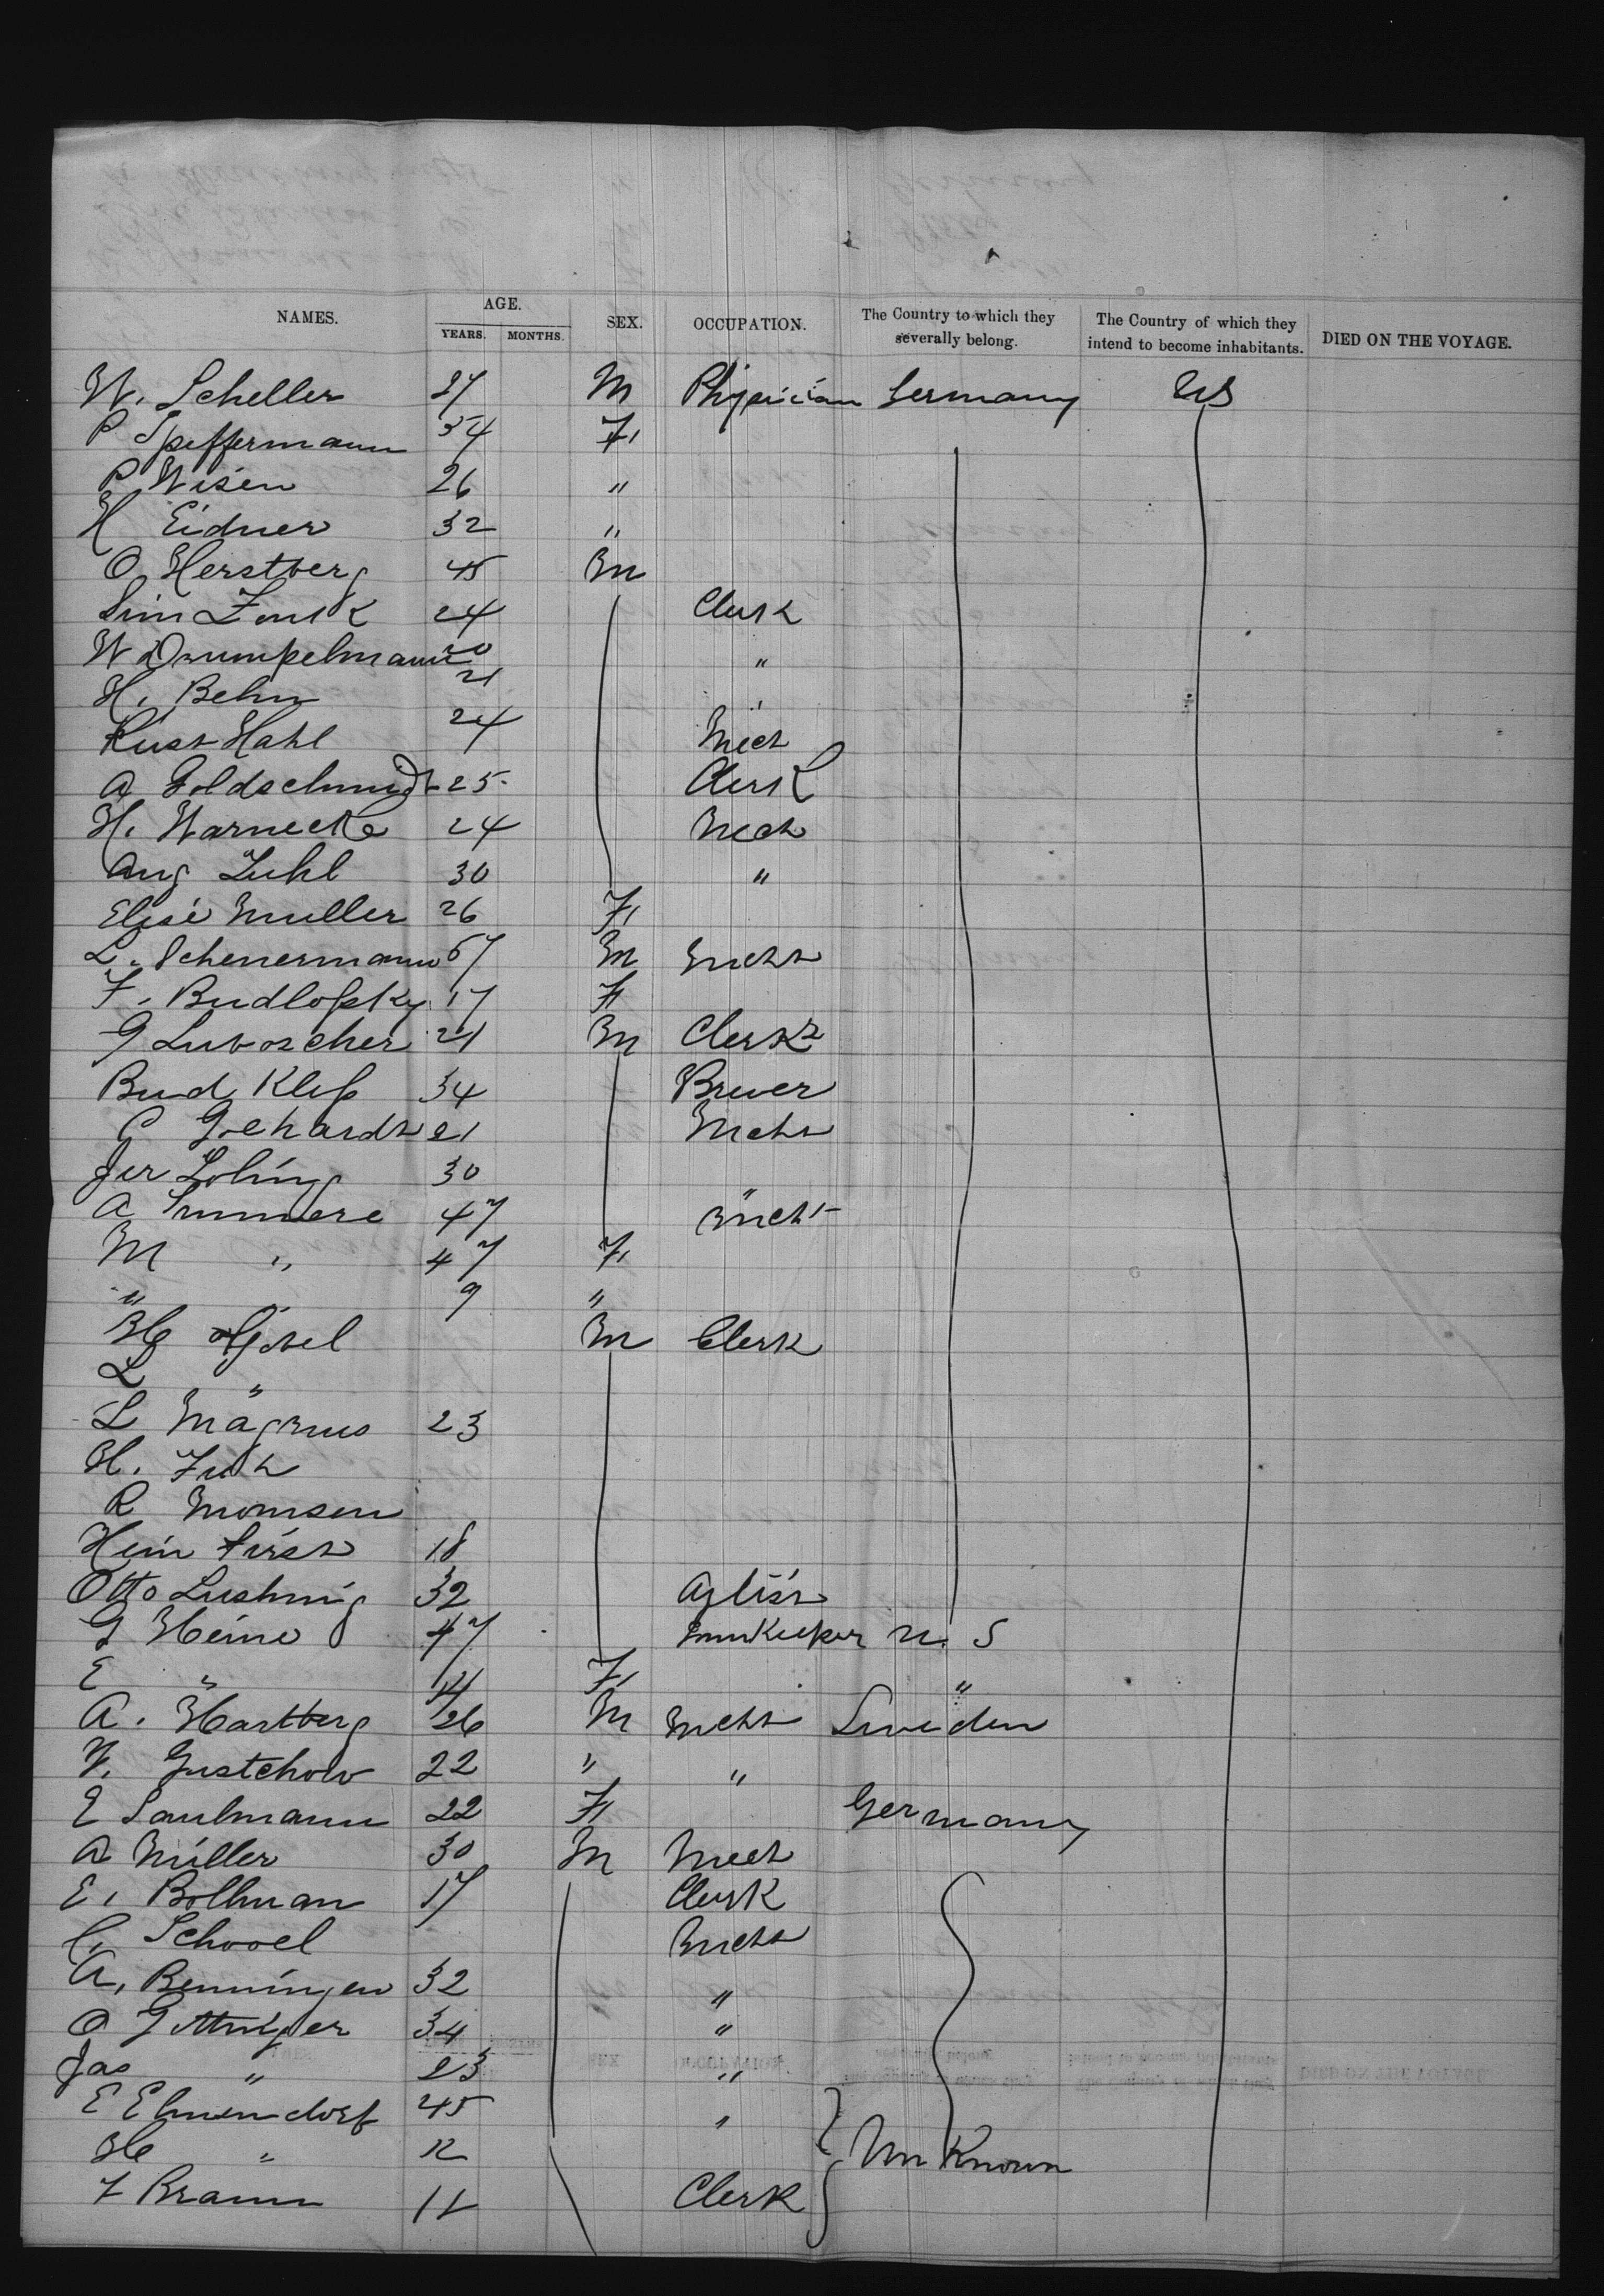 NAMES. AGE. YEARS. MONTHS. SEX. OCCUPATION. The Country to which they severally belong. The Country of which they intend to become inhabitants. DIED ON THE VOYAGE.
W. Scheller 27 M Physician Germany US
P Speffermann 54 F
P Wisen 26 "
H Eidner 32 "
O Herstberg 45 M
24 Clerk
W Drumpelmann 20 "
H. Behn 21 "
Hahl 24 Mech
A Goldschmidt 25 Clerk
H. Warnecke 24 Mech
Aug Zuhl 30 "
Elise Muller 26 F
L. Scheuermann 57 M Mcht
F. Budlofsky 17 F
G Luboscher 21 M Clerk
Klefs 34 Brewer
C Gochardt 21 Mcht
Jer Loling 30 "
A 47 Mcht
M " 47 F
" 9 "
H M Clerk
L "
L Magnus 23
H.
R Momsen
Hein 18
Otto 32 Artist
G Heine 47 Innkeeper U. S
E " 14 F "
A. Hartberg 26 M Mcht Sweden
V. Gustchow 22 " "
E Saulmann 22 F Germany
A Miller 30 M Mech
E. Bollman 17 Clerk
C. Schooel Mcht
A. Benningen 32 "
O Gittinger 34 "
Jas " 23 "
E Elmendorf 45 "
H " 12 Unknown
F Braun 11 Clerk